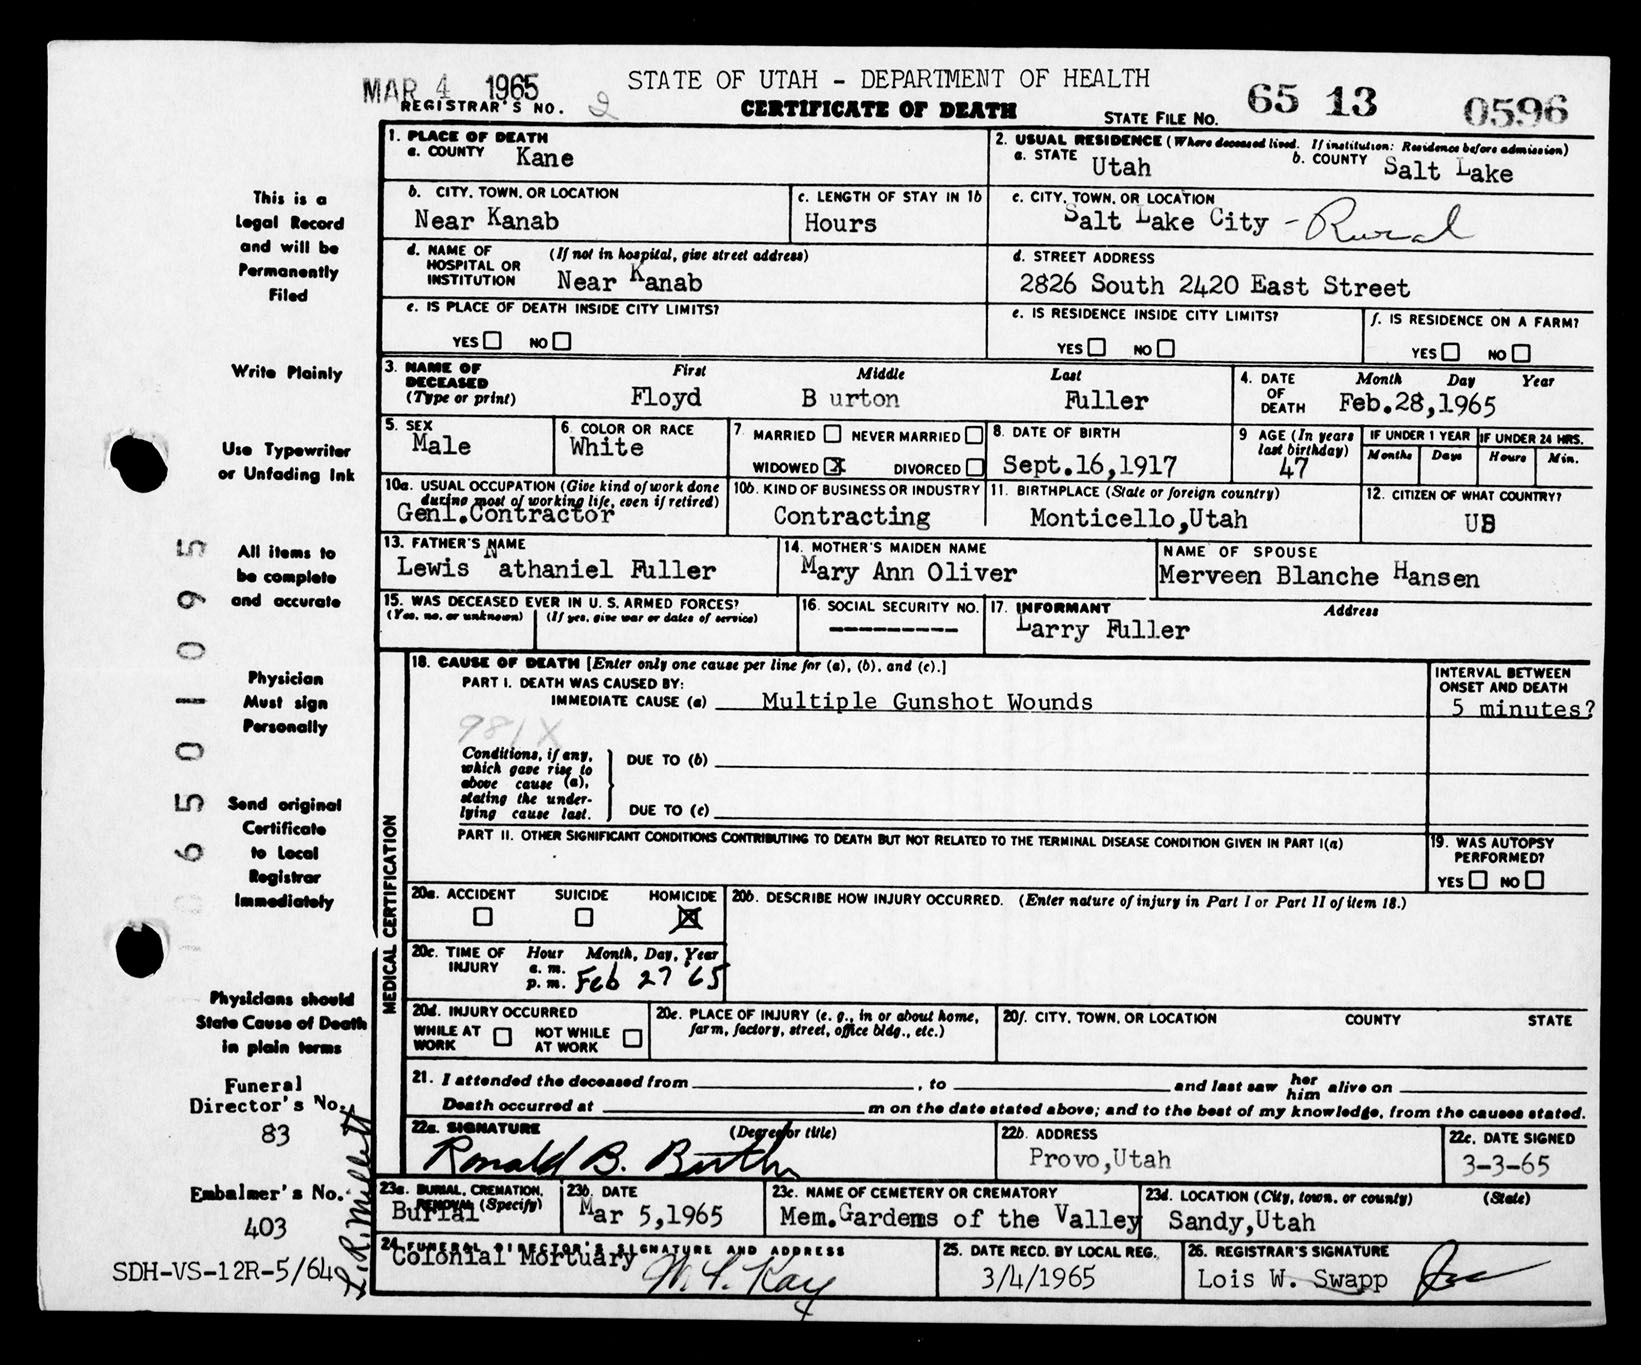 MAR 4 1965
STATE OF UTAH - DEPARTMENT OF HEALTH
REGISTRAR'S NO. 2
CERTIFICATE OF DEATH
STATE FILE NO. 65 13 0596
This is a
Legal Record
and will be
Permanently
Filed
Write Plainly
Use Typewriter
or Unfading Ink
All items to
be complete
and accurate
Physician
Must sign
Personally
Send original
Certificate
to Local
Registrar
Immediately
Physicians should
State Cause of Death
in plain terms
Funeral
Director's No.
83
Embalmer's No.
403
SDH-VS-12R-5/64
L. R. Millett
0650101095
1. PLACE OF DEATH
a. COUNTY Kane
2. USUAL RESIDENCE (Where deceased lived. If institution: Residence before admission)
a. STATE Utah b. COUNTY Salt Lake
b. CITY, TOWN, OR LOCATION
Near Kanab
c. LENGTH OF STAY IN 1b
Hours
c. CITY, TOWN, OR LOCATION
Salt Lake City - Rural
d. NAME OF HOSPITAL OR INSTITUTION (If not in hospital, give street address)
Near Kanab
d. STREET ADDRESS
2826 South 2420 East Street
e. IS PLACE OF DEATH INSIDE CITY LIMITS?
YES NO
e. IS RESIDENCE INSIDE CITY LIMITS?
YES NO
f. IS RESIDENCE ON A FARM?
YES NO
3. NAME OF DECEASED (Type or print)
First Middle Last
Floyd B urton Fuller
4. DATE OF DEATH
Month Day Year
Feb.28,1965
5. SEX
Male
6. COLOR OR RACE
White
7. MARRIED NEVER MARRIED
WIDOWED X DIVORCED
8. DATE OF BIRTH
Sept.16,1917
9 AGE (In years last birthday)
47
IF UNDER 1 YEAR
Months Days
IF UNDER 24 HRS.
Hours Min.
10a. USUAL OCCUPATION (Give kind of work done during most of working life, even if retired)
Genl.Contractor
10b. KIND OF BUSINESS OR INDUSTRY
Contracting
11. BIRTHPLACE (State or foreign country)
Monticello,Utah
12. CITIZEN OF WHAT COUNTRY?
US
13. FATHER'S NAME
Lewis Nathaniel Fuller
14. MOTHER'S MAIDEN NAME
Mary Ann Oliver
NAME OF SPOUSE
Merveen Blanche Hansen
15. WAS DECEASED EVER IN U. S. ARMED FORCES?
(Yes, no, or unknown) (If yes, give war or dates of service)
16. SOCIAL SECURITY NO.
----------
17. INFORMANT Address
Larry Fuller
MEDICAL CERTIFICATION
18. CAUSE OF DEATH [Enter only one cause per line for (a), (b), and (c).]
PART I. DEATH WAS CAUSED BY:
IMMEDIATE CAUSE (a) Multiple Gunshot Wounds
INTERVAL BETWEEN ONSET AND DEATH
5 minutes?
981X
Conditions, if any, which gave rise to above cause (a), stating the underlying cause last.
DUE TO (b)
DUE TO (c)
PART II. OTHER SIGNIFICANT CONDITIONS CONTRIBUTING TO DEATH BUT NOT RELATED TO THE TERMINAL DISEASE CONDITION GIVEN IN PART I(a)
19. WAS AUTOPSY PERFORMED?
YES NO
20a. ACCIDENT SUICIDE HOMICIDE
X
20b. DESCRIBE HOW INJURY OCCURRED. (Enter nature of injury in Part I or Part II of item 18.)
20c. TIME OF INJURY
Hour Month, Day, Year
a. m.
p. m. Feb 27 '65
20d. INJURY OCCURRED
WHILE AT WORK NOT WHILE AT WORK
20e. PLACE OF INJURY (e. g., in or about home, farm, factory, street, office bldg., etc.)
20f. CITY, TOWN, OR LOCATION COUNTY STATE
21. I attended the deceased from , to and last saw her him alive on
Death occurred at m on the date stated above; and to the best of my knowledge, from the causes stated.
22a. SIGNATURE (Degree or title)
Ronald B.
22b. ADDRESS
Provo,Utah
22c. DATE SIGNED
3-3-65
23a. BURIAL, CREMATION, REMOVAL (Specify)
Burial
23b. DATE
Mar 5,1965
23c. NAME OF CEMETERY OR CREMATORY
Mem.Gardens of the Valley
23d. LOCATION (City, town, or county) (State)
Sandy,Utah
24 FUNERAL DIRECTOR'S SIGNATURE AND ADDRESS
Colonial Mortuary
25. DATE RECD. BY LOCAL REG.
3/4/1965
26. REGISTRAR'S SIGNATURE
Lois W. Swapp